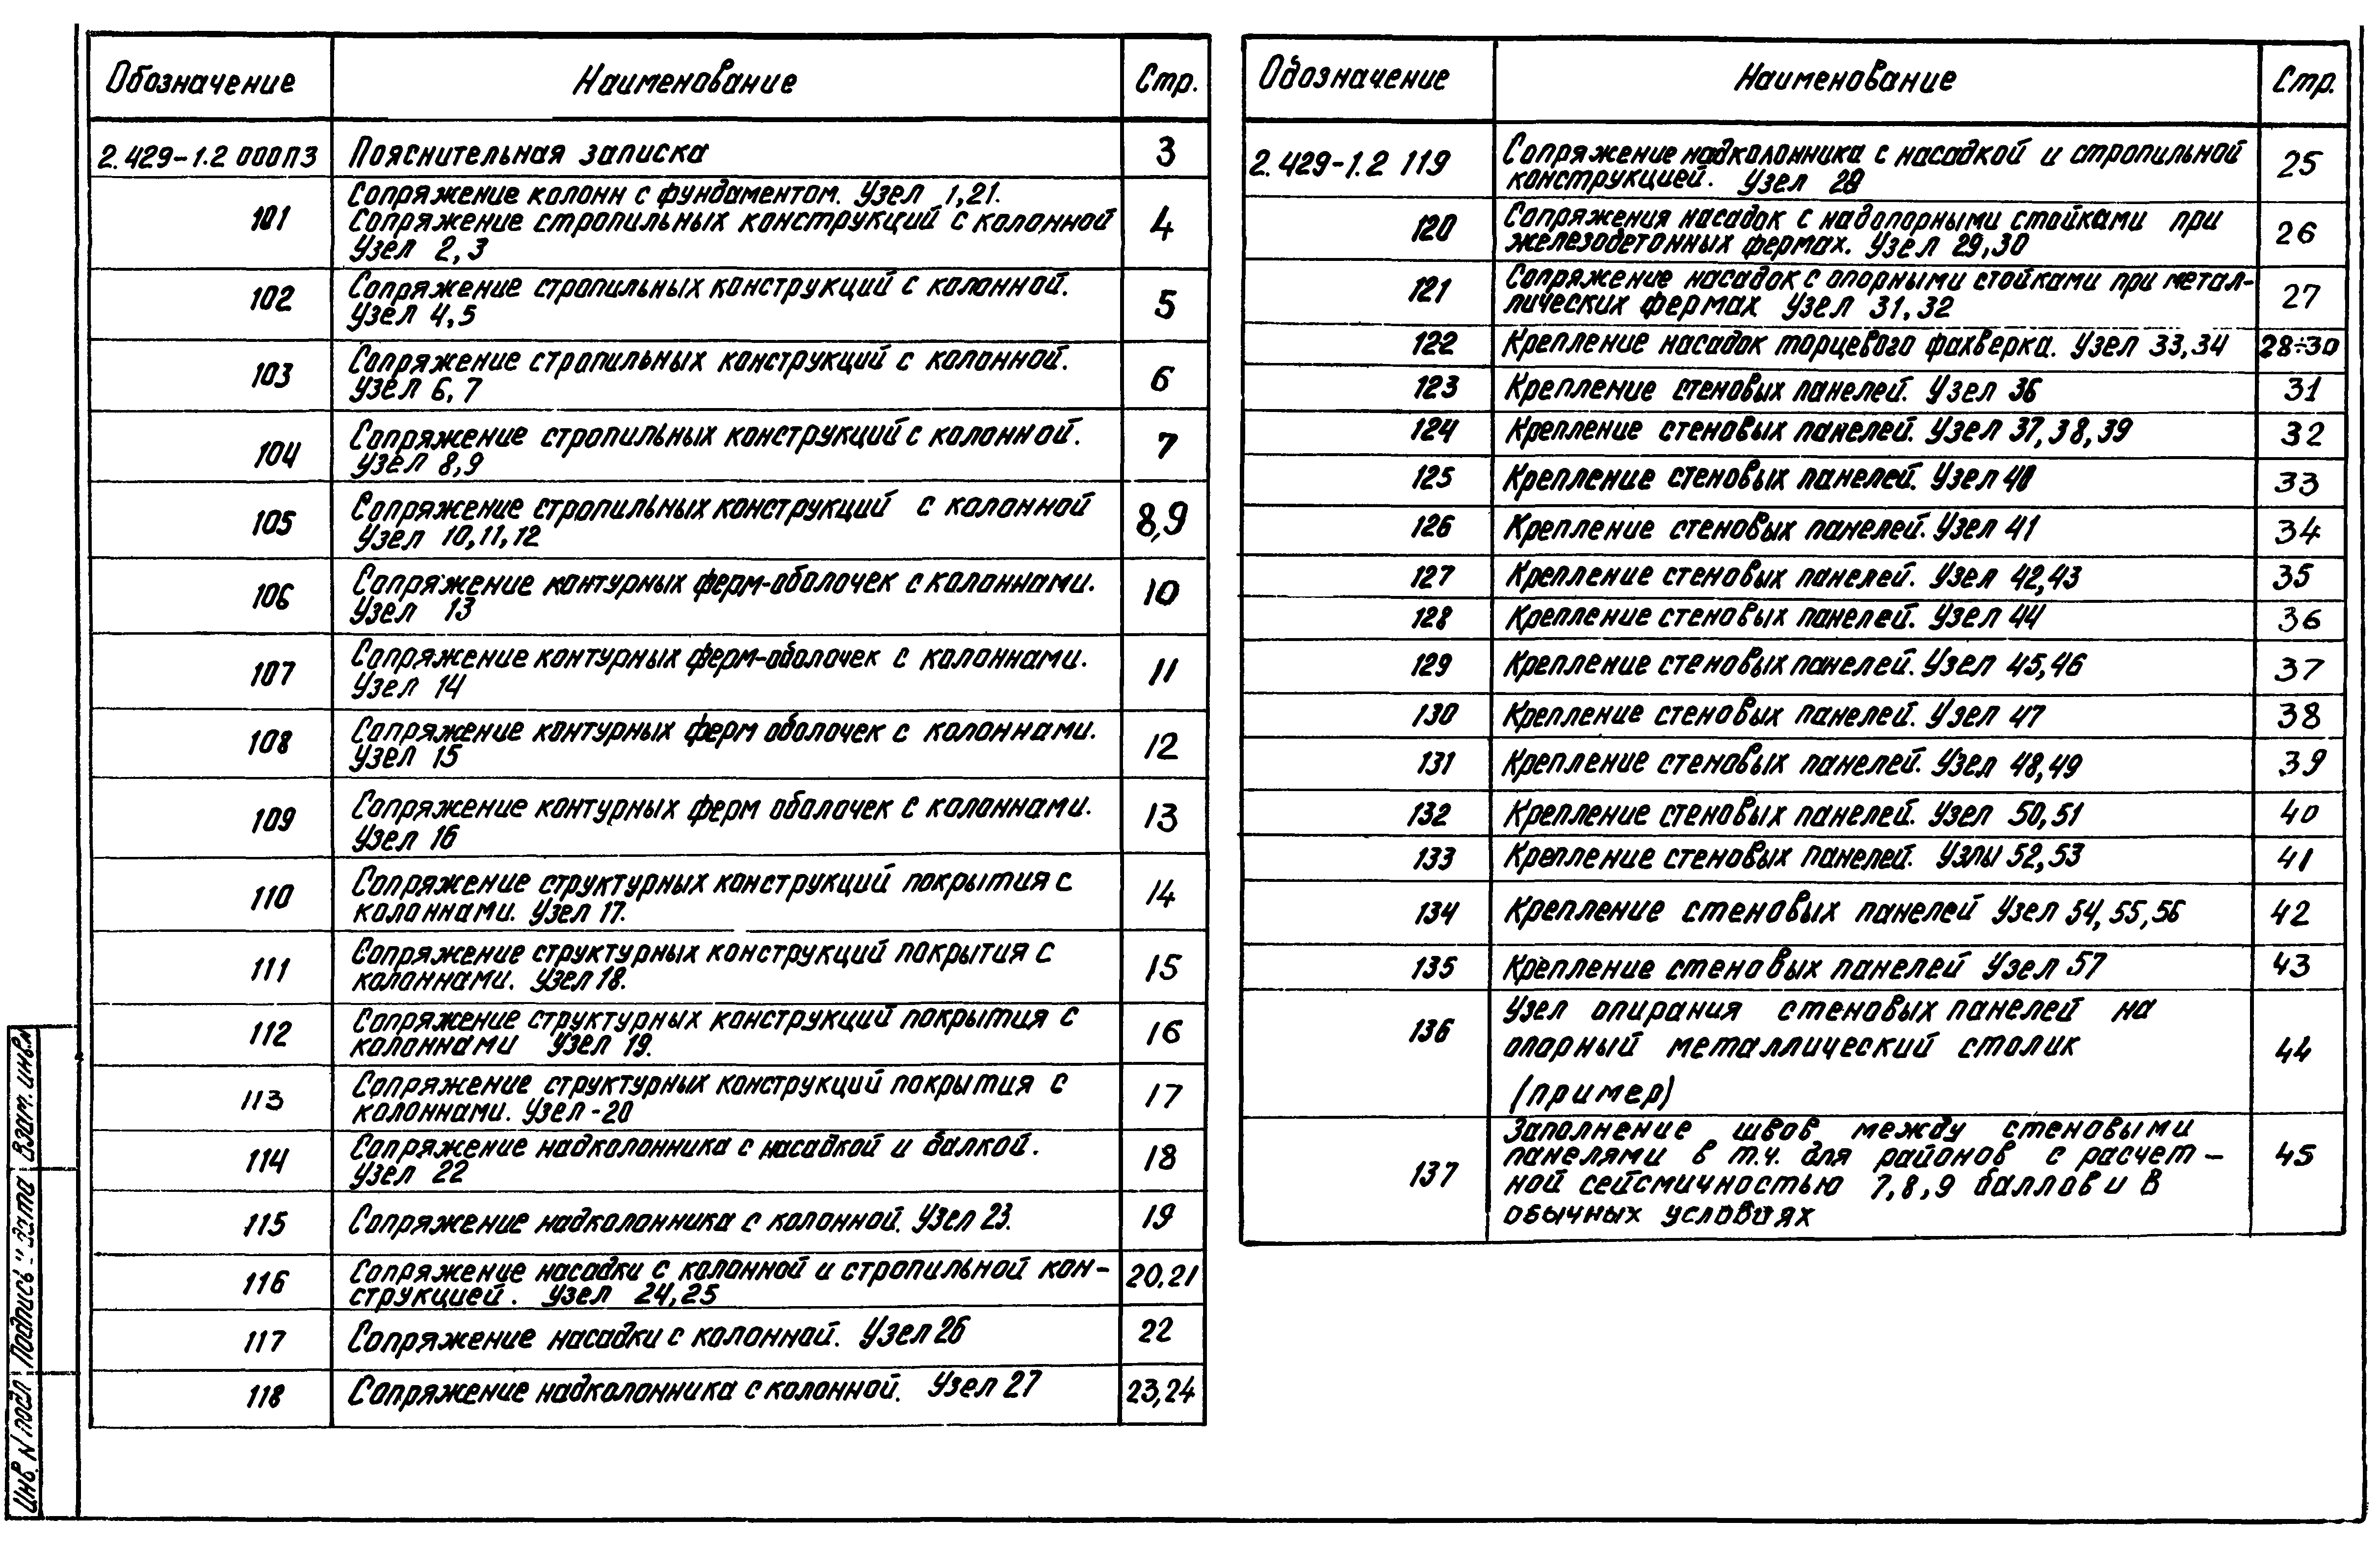 Обозначение Наименование Стр.
2.429-1.2 000ПЗ Пояснительная записка 3
101 Сопряжение колонн с фундаментом. Узел 1,21.
Сопряжение стропильных конструкций с колонной
Узел 2,3 4
102 Сопряжение стропильных конструкций с колонной.
Узел 4,5 5
103 Сопряжение стропильных конструкций с колонной.
Узел 6,7 6
104 Сопряжение стропильных конструкций с колонной.
Узел 8,9 7
105 Сопряжение стропильных конструкций с колонной
Узел 10,11,12 8,9
106 Сопряжение контурных ферм-оболочек с колоннами.
Узел 13 10
107 Сопряжение контурных ферм-оболочек с колоннами.
Узел 14 11
108 Сопряжение контурных ферм оболочек с колоннами.
Узел 15 12
109 Сопряжение контурных ферм оболочек с колоннами.
Узел 16 13
110 Сопряжение структурных конструкций покрытия с
колоннами. Узел 17. 14
111 Сопряжение структурных конструкций покрытия с
колоннами. Узел 18. 15
112 Сопряжение структурных конструкций покрытия с
колоннами Узел 19. 16
113 Сопряжение структурных конструкций покрытия с
колоннами. Узел-20 17
114 Сопряжение надколонника с насадкой и балкой.
Узел 22 18
115 Сопряжение надколонника с колонной. Узел 23. 19
116 Сопряжение насадки с колонной и стропильной кон-
струкцией. Узел 24,25 20,21
117 Сопряжение насадки с колонной. Узел 26 22
118 Сопряжение надколонника с колонной. Узел 27 23,24
Обозначение Наименование Стр.
2.429-1.2 119 Сопряжение надколонника с насадкой и стропильной
конструкцией. Узел 28 25
120 Сопряжения насадок с надопорными стойками при
железобетонных фермах. Узел 29,30 26
121 Сопряжение насадок с опорными стойками при метал-
лических фермах Узел 31,32 27
122 Крепление насадок торцевого фахверка. Узел 33,34 28÷30
123 Крепление стеновых панелей. Узел 36 31
124 Крепление стеновых панелей. Узел 37,38,39 32
125 Крепление стеновых панелей. Узел 40 33
126 Крепление стеновых панелей. Узел 41 34
127 Крепление стеновых панелей. Узел 42,43 35
128 Крепление стеновых панелей. Узел 44 36
129 Крепление стеновых панелей. Узел 45,46 37
130 Крепление стеновых панелей. Узел 47 38
131 Крепление стеновых панелей. Узел 48,49 39
132 Крепление стеновых панелей. Узел 50,51 40
133 Крепление стеновых панелей. Узлы 52,53 41
134 Крепление стеновых панелей Узел 54,55,56 42
135 Крепление стеновых панелей Узел 57 43
136 Узел опирания стеновых панелей на
опорный металлический столик
(пример) 44
137 Заполнение швов между стеновыми
панелями в т.ч. для районов с расчет-
ной сейсмичностью 7,8,9 баллов и в
обычных условиях 45
Инв. N подл Подпись и дата Взам. инв. N